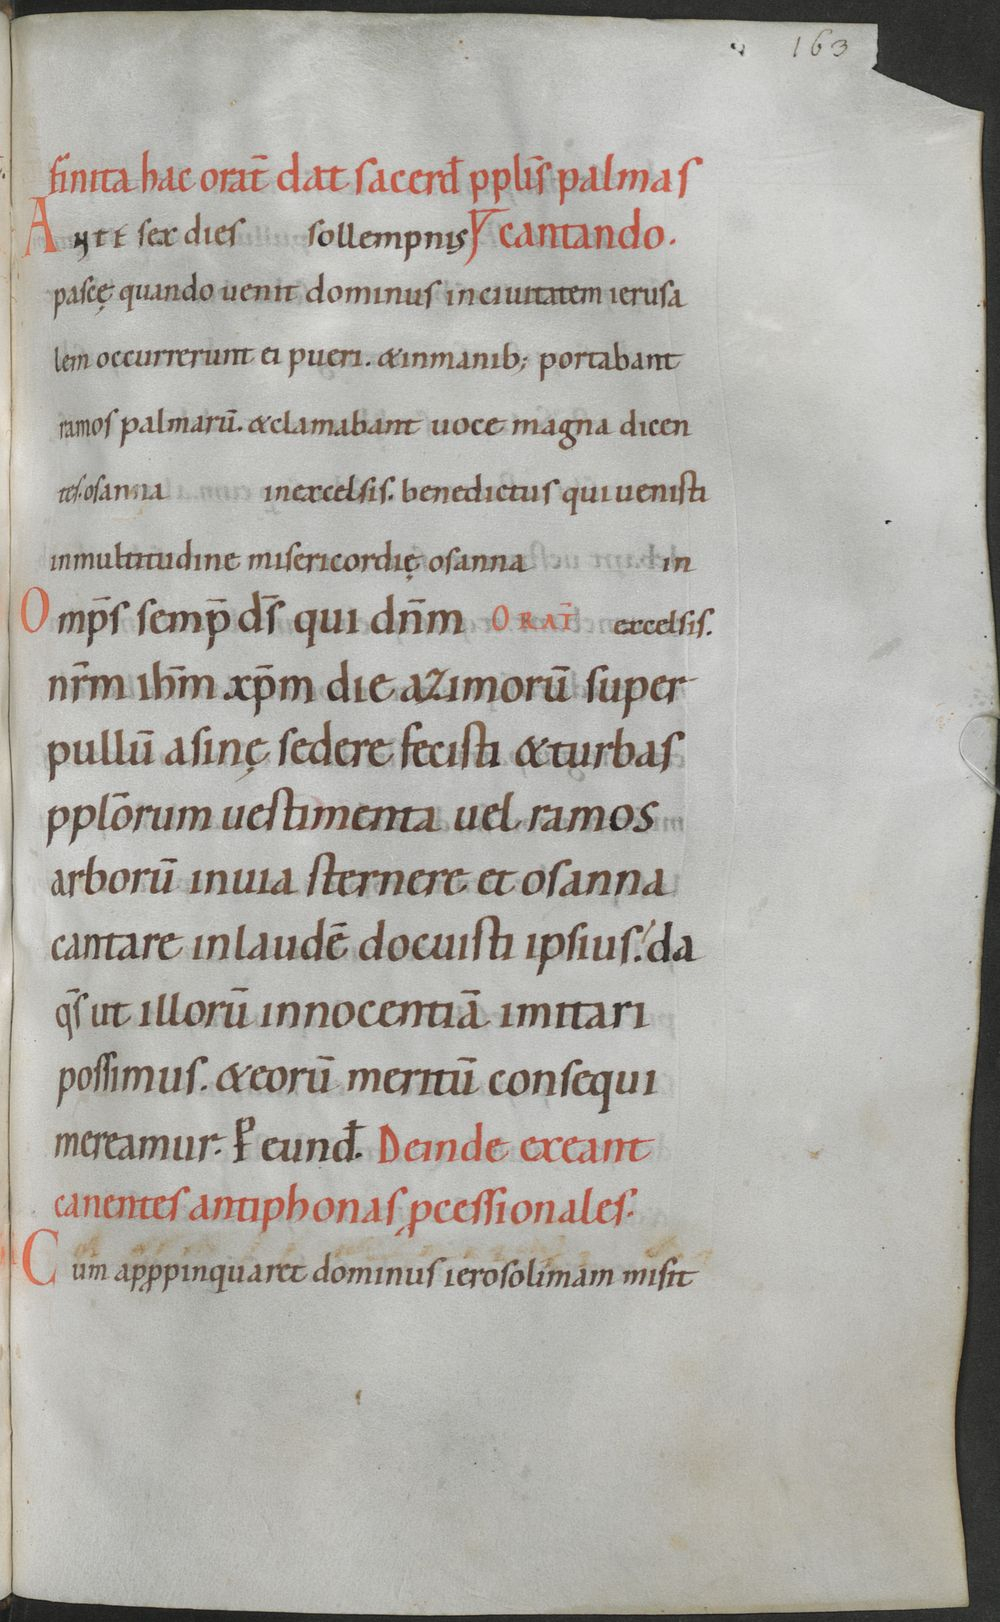 163
finita hac orat̄ dat sacerd̄ pplīs palmas
Ante sex dies sollempnis ℣ cantando.
pascę quando uenit dominus inciuitatem ierusa
lem occurrerunt ei pueri. &inmanib; portabant
ramos palmarū. &clamabant uoce magna dicen
tes. osanna inexcelsis. benedictus qui uenisti
inmultitudine misericordię osanna in
Omp̄s semp̄ ds̄ qui dn̄m ORAT̄ excelsis.
nr̄m ihm̄ xp̄m die azimorū super
pullū asinę sedere fecisti &turbas
pplōrum uestimenta uel ramos
arborū inuia sternere et osanna
cantare inlaudē docuisti ipsius: da
qs̄ ut illorū innocentiā imitari
possimus. &eorū meritū consequi
mereamur. P̄ eund̄. Deinde exeant
canentes antiphonas ꝓcessionales.
Cum apꝓpinquaret dominus ierosolimam misit